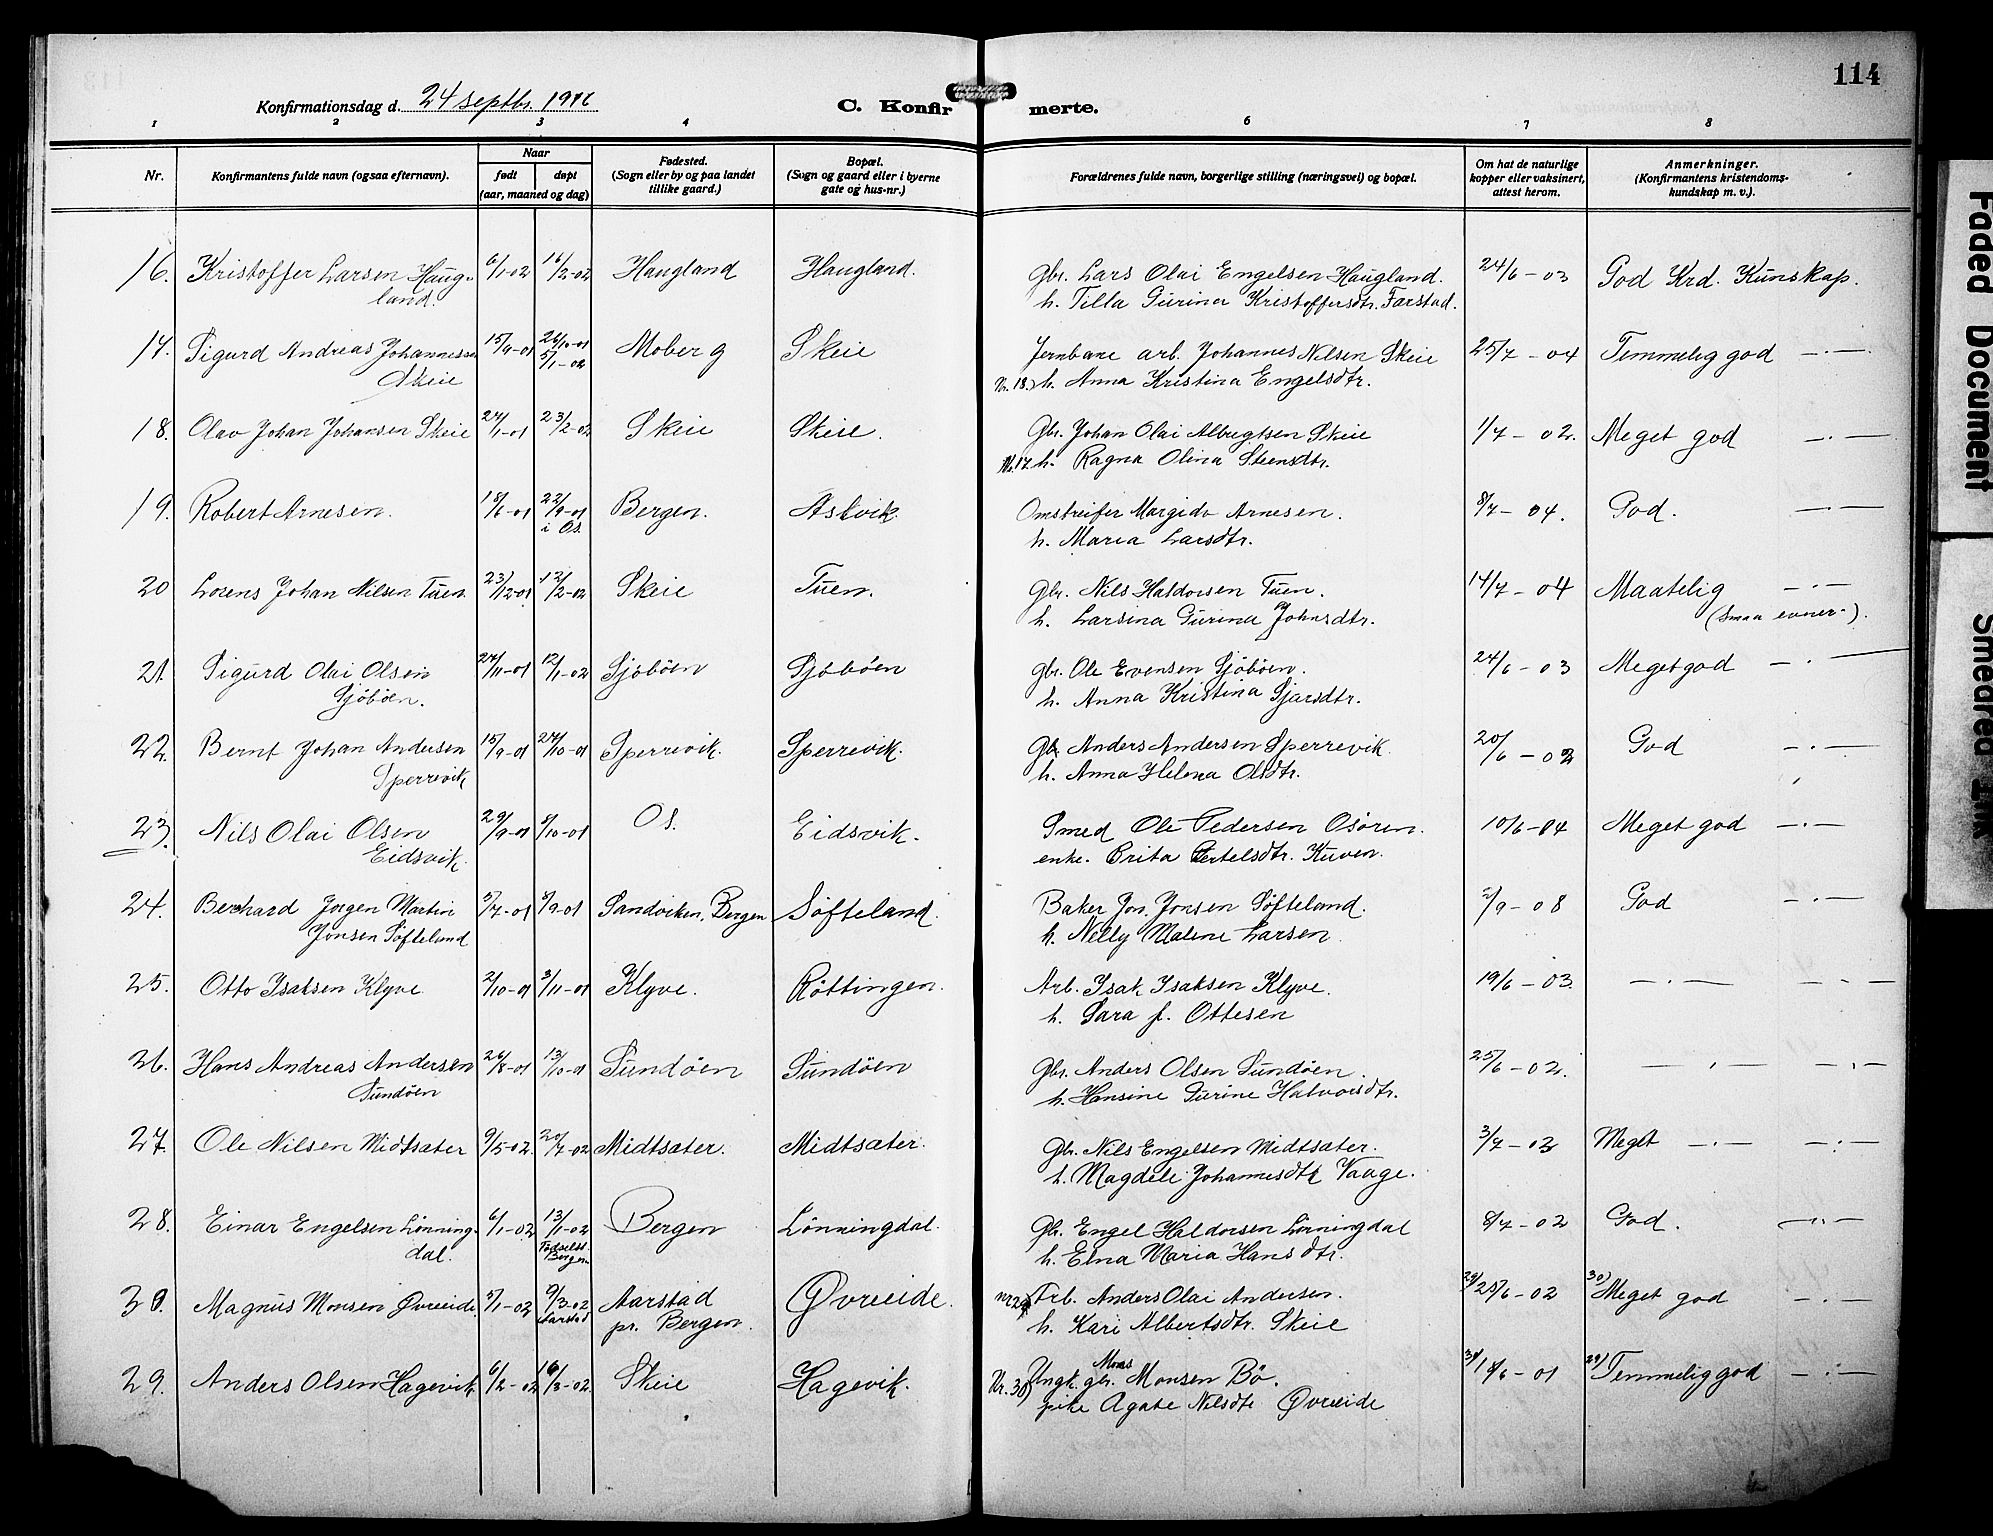 114
Konfirmationsdag d. 24 septbr. 1916
C. Konfirmerte.
1 2 3 4 5 6 7 8
Nr.
Konfirmantens fulde navn (ogsaa efternavn).
Naar
født døpt
(aar, maaned og dag)
Fødested.
(Sogn eller by og paa landet
tillike gaard.)
Bopæl.
(Sogn og gaard eller i byerne
gate og hus-nr.)
Forældrenes fulde navn, borgerlige stilling (næringsvei) og bopæl.
Om hat de naturlige
kopper eller vaksinert,
attest herom.
Anmerkninger.
(Konfirmantens kristendoms-
kundskap m. v.).
16. Kristoffer Larsen Haug- 6/1-02 16/2-02 Haugland Haugland. Gbr. Lars Olai Engelsen Haugland. 24/6-03 God Krd. Kunskap.
land. h. Tilla Gurina Kristoffersdtr. Farstad.
17. Sigurd Andreas Johannessen 15/9-01 26/10-01 Moberg Skeie Jernbane arb. Johannes Nilsen Skeie 25/7-04 Temmelig god —.—
Skeie 5/1-02 Nr. 18.) h. Anna Kristina Engelsdtr.
18. Olav Johan Johansen Skeie 24/1-01 23/2-02 Skeie Skeie. Gbr. Johan Olai Albregtsen Skeie 1/7-02. Meget god —.—
Nr. 17 h. Ragna Olina Steensdtr.
19. Robert Arnesen. 18/6-01 22/9-01 Bergen. Askvik. Omstreifer Margido Arnesen. 8/7-04. God. —.—
i Os. h. Maria Larsdtr.
20 Lorens Johan Nilsen Tuen. 23/12-01 12/2-02 Skeie Tuen. Gbr. Nils Haldorsen Tuen. 14/7-04 Maatelig —.—
h. Larsina Gurina Johnsdtr. (smaa evner-).
21. Sigurd Olai Olsen 24/11-01 12/1-02 Sjøbøen Sjøbøen gbr. Ole Evensen Sjøbøen. 24/6-03 Meget god —.—
Sjøbøen. h. Anna Kristina Sjarsdtr.
22. Bernt Johan Andersen 15/9-01 27/10-01 Sperrevik. Sperrevik. Gb. Anders Andersen Sperrevik. 20/6-02 God —.—
Sperrevik h. Anna Helena Olsdtr.
23. Nils Olai Olsen 29/9-01 /10-01 Os. Eidsvik. Smed Ole Pedersen Osøren. 10/6-04 Meget god —.—
Eidsvik. enke. Brita Bertelsdtr. Kuven.
24. Bernhard Jørgen Martin 5/7-01 /9-01 Sandviken, Bergen Søfteland. Baker Jon. Jonsen Søfteland. /9-08 God —.—
Jonsen Søfteland h. Nelly Malene Larsen.
25. Otto Isaksen Klyve 2/10-01 3/11-01 Klyve. Røttingen. Arb. Isak Isaksen Klyve. 19/6-03. —.— —.—
h. Sara f. Ottesen
26. Hans Andreas Andersen 26/8-01 13/10-01 Sundøen Sundøen Gbr. Anders Olsen Sundøen. 25/6-02. —.— —.—
Sundøen h. Hansine Gurine Halvorsdtr.
27. Ole Nilsen Midtsæter 9/5-02. 20/7-02 Midtsæter. Midtsæter. Gb. Nils Engelsen Midtsæter. 3/7-03 Meget —.— —.—
h. Magdele Johannesdtr Vaage.
28. Einar Engelsen Lønning- 6/1-02 13/1-02 Bergen Lønningdal. Gb. Engel Haldorsen Lønningdal 8/7-02 God. —"—
dal. Fødselsst. h. Elna Maria Hansdtr.
Bergen
30. Magnus Monsen Øvreeide. 5/1-02 9/3-02 Aarstad Øvreeide. nr 29 Arb. Anders Olai Andersen. 29/ 25/6-02 30) Meget god —.—
Aarstad pr. Bergen. h. Kari Albertsdtr. Skeie
29. Anders Olsen Hagevik. 6/2-02 16/3-02. Skeie Hagevik. Nr. 30) Ungk. gbr. Mons Monsen Bø. 30/ 18/6-01 29/ Temmelig god —.—
pike Agate Nilsdtr Øvreeide
Faded Document
Smedred